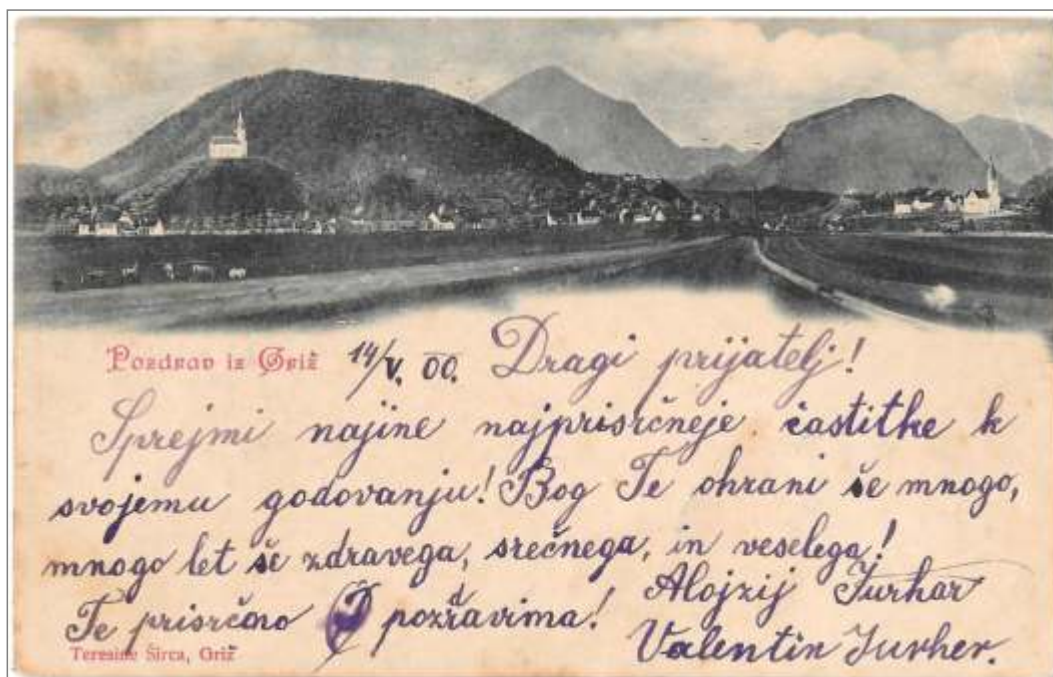 Pozdrav iz Griž 14/V. 00. Dragi prijatelj!
Sprejmi najine najprisrčneje častitke k
svojemu godovanju! Bog Te ohrani še mnogo,
mnogo let še zdravega, srečnega, in veselega!
Te prisrčno pozdravima! Alojzij
Teresine Širca, Griž Valentin